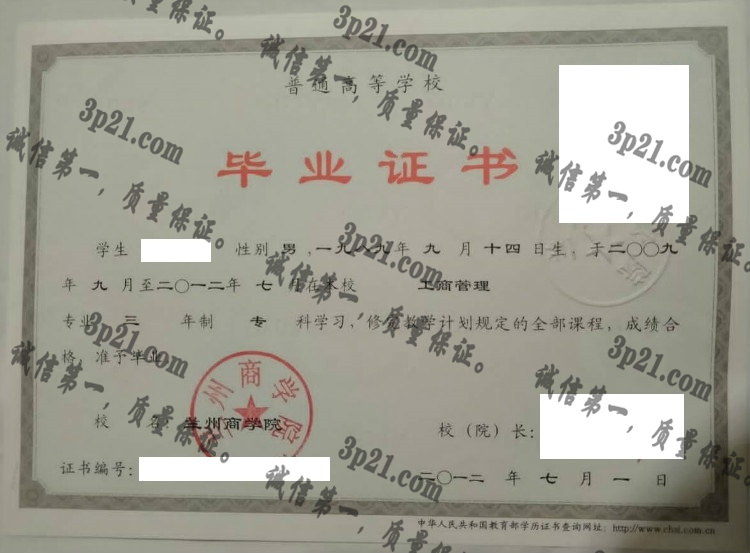 普通高等学校
毕业证书
学生 性别 男,一九八九年 九 月十四日生,于二〇〇九
年 九 月至二〇一二年 七 月在本校 工商管理
专业 三 年制 专 科学习,修完教学计划规定的全部课程,成绩合
格,准予毕业
校 名:兰州商学院
校(院)长:
证书编号:
二〇一二 年 七 月 一 日
中华人民共和国教育部学历证书查询网址:http://www.chsi.com.cn
兰州商学院
3p21.com
诚信第一,质量保证。
3p21.com
诚信第一,质量保证。
3p21.com
诚信第一,质量保证。
3p21.com
诚信第一,质量保证。
3p21.com
诚信第一,质量保证。
3p21.com
诚信第一,质量保证。
3p21.com
诚信第一,质量保证。